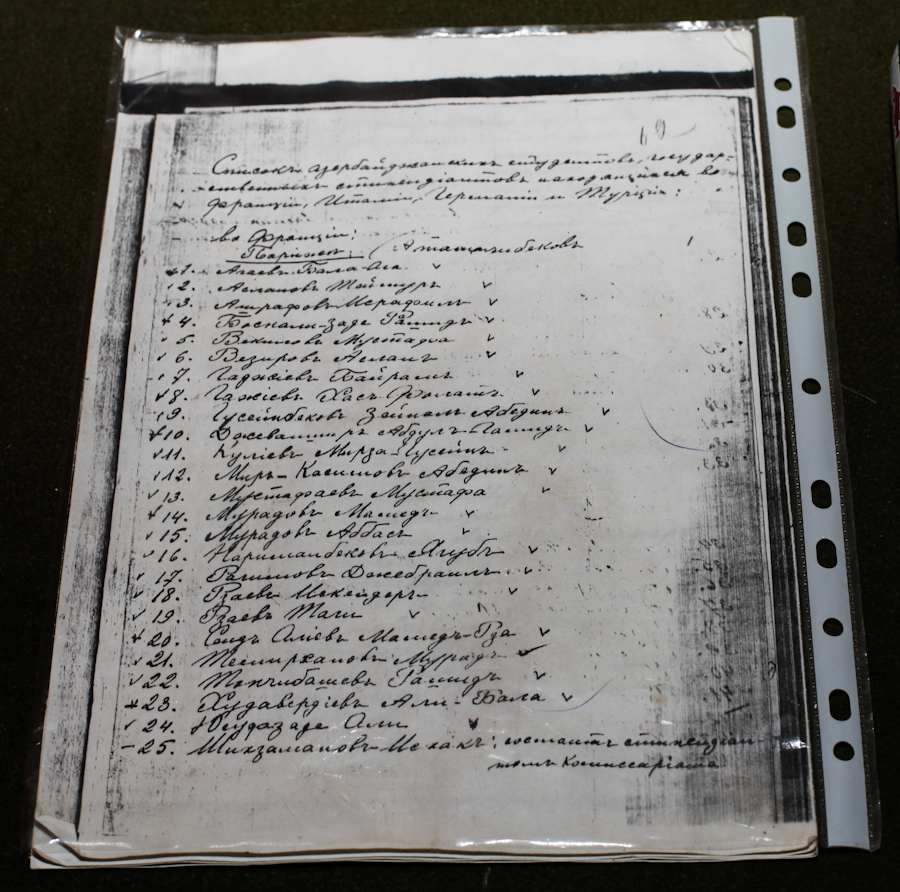 69
Списокъ азербайджанскихъ студентовъ, государ-
ственныхъ стипендіатовъ находящихся во
Франціи, Италіи, Германіи и Турціи:
во Франціи:
Парижъ: Аташалибековъ
1. Агаевъ Бала-Ага
2. Аслановъ Теймуръ
3. Ашрафовъ Исрафилъ
4. Гашидъ
5. Векиловъ Мустафа
6. Везировъ Асланъ
7. Гаджіевъ Байрамъ
8. Гажіевъ Хасъ Фолатъ
9. Гусейнбековъ Зейналъ Абединъ
10. Джеванширъ Абдулъ-Гамидъ
11. Куліевъ Мирза-Гусейнъ
12. Миръ-Касимовъ Абединъ
13. Мустафаевъ Мустафа
14. Мурадовъ Мамедъ
15. Мурадовъ Аббасъ
16. Нариманбековъ Ягубъ
17. Рагимовъ Джебраилъ
18. Рзаевъ Искендеръ
19. Рзаевъ Таги
20. Сидъ Аліевъ Мамедъ-Рза
21. Темирхановъ Мурадъ
22. Топчибашевъ Рашидъ
23. Худавердіевъ Али-Бала
24. Али
25. Шихзамановъ Исхакъ: состоитъ стипендіа-
томъ Комиссаріата